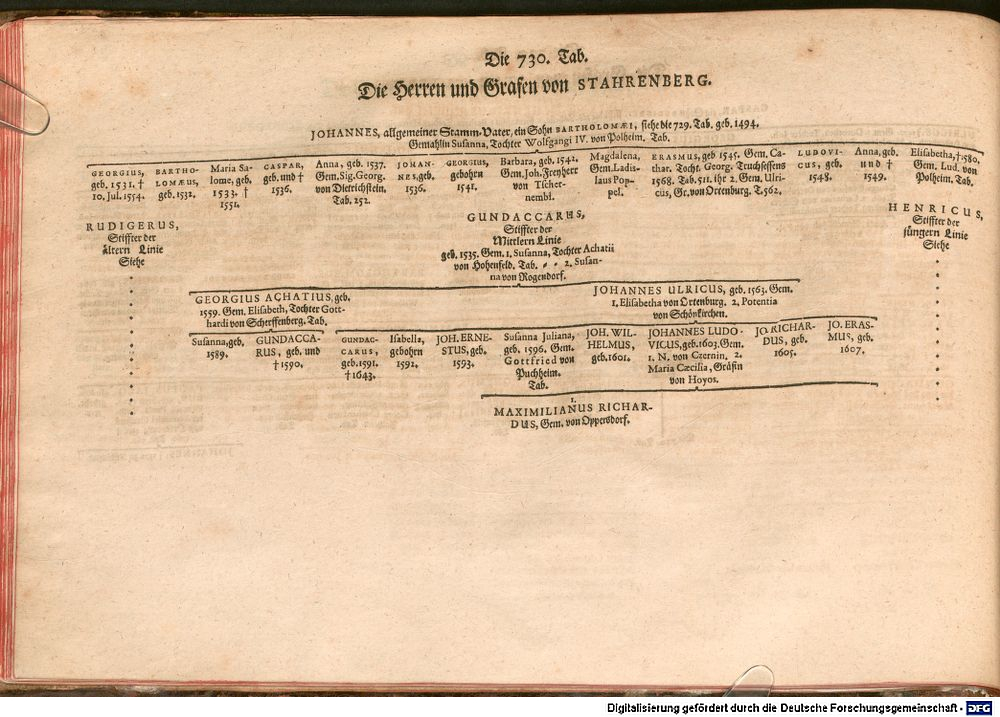 Die 730. Tab.
Die Herren und Grafen von STAHRENBERG.
JOHANNES, allgemeiner Stamm-Vater, ein Sohn BARTHOLOMÆI, siehe die 729. Tab. geb. 1494.
Gemahlin Susanna, Tochter Wolfgangi IV. von Polheim. Tab.
GEORGIUS,
geb. 1531. †
10. Jul. 1554.
BARTHO-
LOMÆUS,
geb. 1532.
Maria Sa-
lome, geb.
1533. †
1551.
CASPAR,
geb. und †
1536.
Anna, geb. 1537.
Gem. Sig. Georg.
von Dietrichstein.
Tab. 252.
JOHAN-
NES, geb.
1536.
GEORGIUS,
gebohrn
1541.
Barbara, geb. 1542.
Gem. Joh. Freyherr
von Tscher-
nembl.
Magdalena,
Gem. Ladis-
laus Pop-
pel.
ERASMUS, geb 1545. Gem. Ca-
thar. Tocht. Georg. Truchsessens
1568. Tab. 511. ihr 2. Gem. Ulri-
cus, Gr. von Ortenburg. T. 562.
LUDOVI-
CUS, geb.
1548.
Anna, geb.
und †
1549.
Elisabetha, † 1580.
Gem. Lud. von
Polheim. Tab.
RUDIGERUS,
Stiffter der
ältern Linie
Siehe
GUNDACCARUS,
Stiffter der
Mittlern Linie
geb. 1535. Gem. 1. Susanna, Tochter Achatii
von Hohenfeld. Tab. - - 2. Susan-
na von Rogendorf.
HENRICUS,
Stiffter der
jüngern Linie
Siehe
GEORGIUS ACHATIUS, geb.
1559. Gem. Elisabeth, Tochter Gott-
hardi von Scherffenberg. Tab.
JOHANNES ULRICUS, geb. 1563. Gem.
1. Elisabetha von Ortenburg. 2. Potentia
von Schönkirchen.
Susanna, geb.
1589.
GUNDACCA-
RUS, geb. und
† 1590.
GUNDAC-
CARUS,
geb. 1591.
† 1643.
Isabella,
gebohrn
1592.
JOH. ERNE-
STUS, geb.
1593.
Susanna Juliana,
geb. 1596. Gem.
Gottfried von
Puchheim.
Tab.
JOH. WIL-
HELMUS,
geb. 1601.
JOHANNES LUDO-
VICUS, geb. 1603. Gem.
1. N. von Czernin. 2.
Maria Cæcilia, Gräfin
von Hoyos.
JO. RICHAR-
DUS, geb.
1605.
JO. ERAS-
MUS, geb.
1607.
1.
MAXIMILIANUS RICHAR-
DUS, Gem. von Oppersdorf.
Digitalisierung gefördert durch die Deutsche Forschungsgemeinschaft - DFG